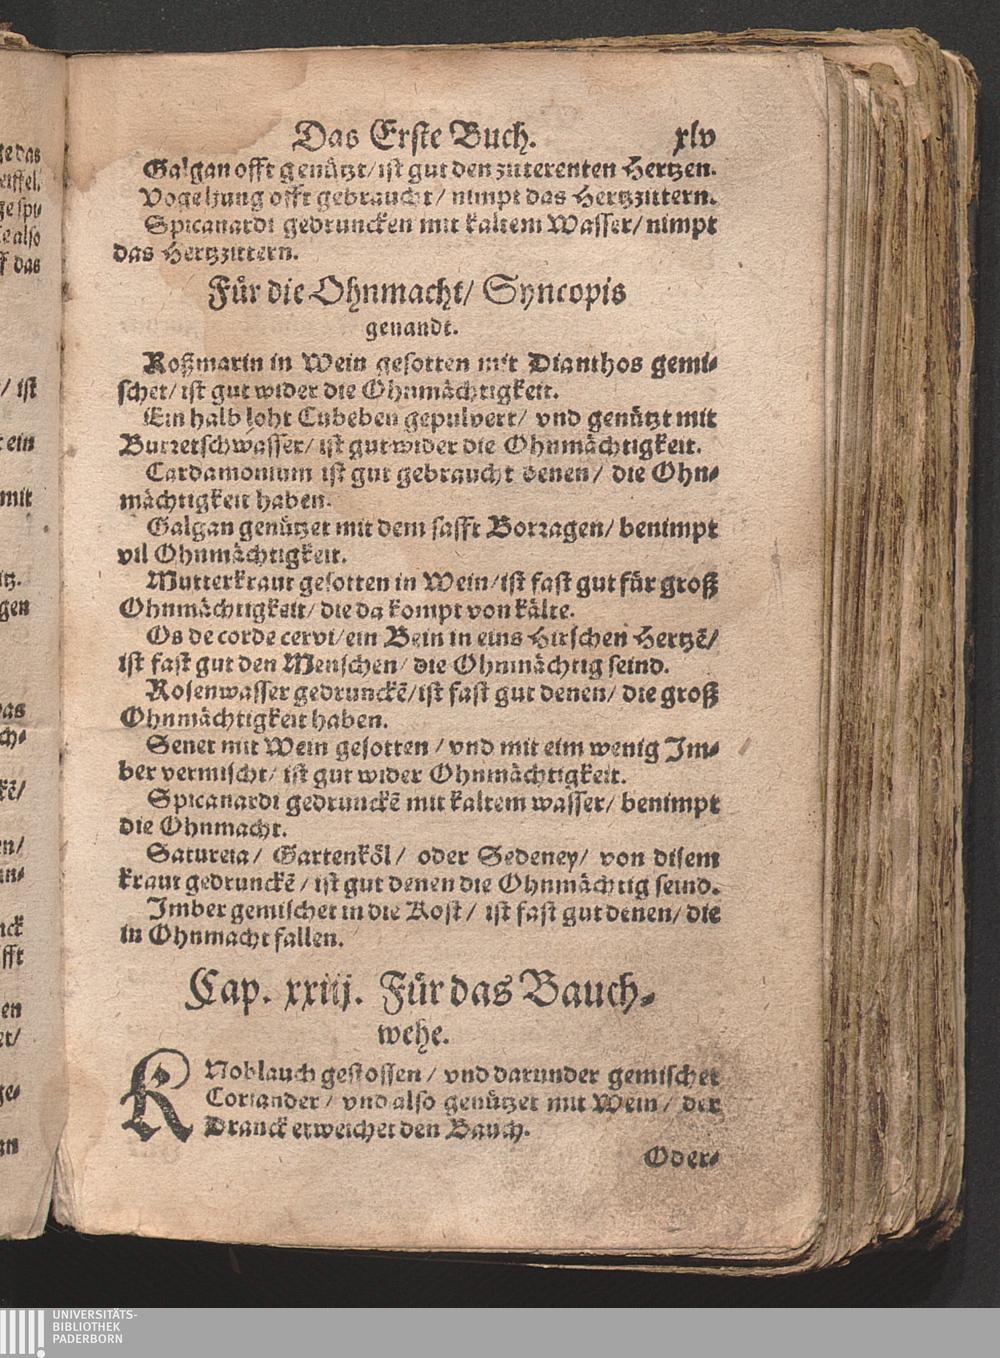 Das Erste Buch. xlv
Galgan offt genützt/ ist gut den zitterenten Hertzen.
Vogelzung offt gebraucht/ nimpt das Hertzzittern.
Spicanardi gedruncken mit kaltem Wasser/ nimpt
das Hertzzittern.
Für die Ohnmacht/ Syncopis
genandt.
Roßmarin in Wein gesotten mit Dianthos gemi-
schet/ ist gut wider die Ohnmächtigkeit.
Ein halb loht Cubeben gepulvert/ vnd genützt mit
Burretschwasser/ ist gut wider die Ohnmächtigkeit.
Cardamomum ist gut gebraucht denen/ die Ohn-
mächtigkeit haben.
Galgan genützet mit dem safft Borragen/ benimpt
vil Ohnmächtigkeit.
Mutterkraut gesotten in Wein/ ist fast gut für groß
Ohnmächtigkeit/ die da kompt von kälte.
Os de corde cervi/ ein Bein in eins Hirschen Hertzē/
ist fast gut den Menschen/ die Ohnmächtig seind.
Rosenwasser gedrunckē/ ist fast gut denen/ die groß
Ohnmächtigkeit haben.
Senet mit Wein gesotten/ vnd mit eim wenig Im-
ber vermischt/ ist gut wider Ohnmächtigkeit.
Spicanardi gedrunckē mit kaltem wasser/ benimpt
die Ohnmacht.
Satureia/ Gartenköl/ oder Sedeney/ von disem
kraut gedrunckē/ ist gut denen die Ohnmächtig seind.
Imber gemischet in die Kost/ ist fast gut denen/ die
in Ohnmacht fallen.
Cap. xxiij. Für das Bauch-
wehe.
KNoblauch gestossen/ vnd darunder gemischet
Coriander/ vnd also genützet mit Wein/ der
Dranck erweichet den Bauch.
Oder-
UNIVERSITÄTS-
BIBLIOTHEK
PADERBORN